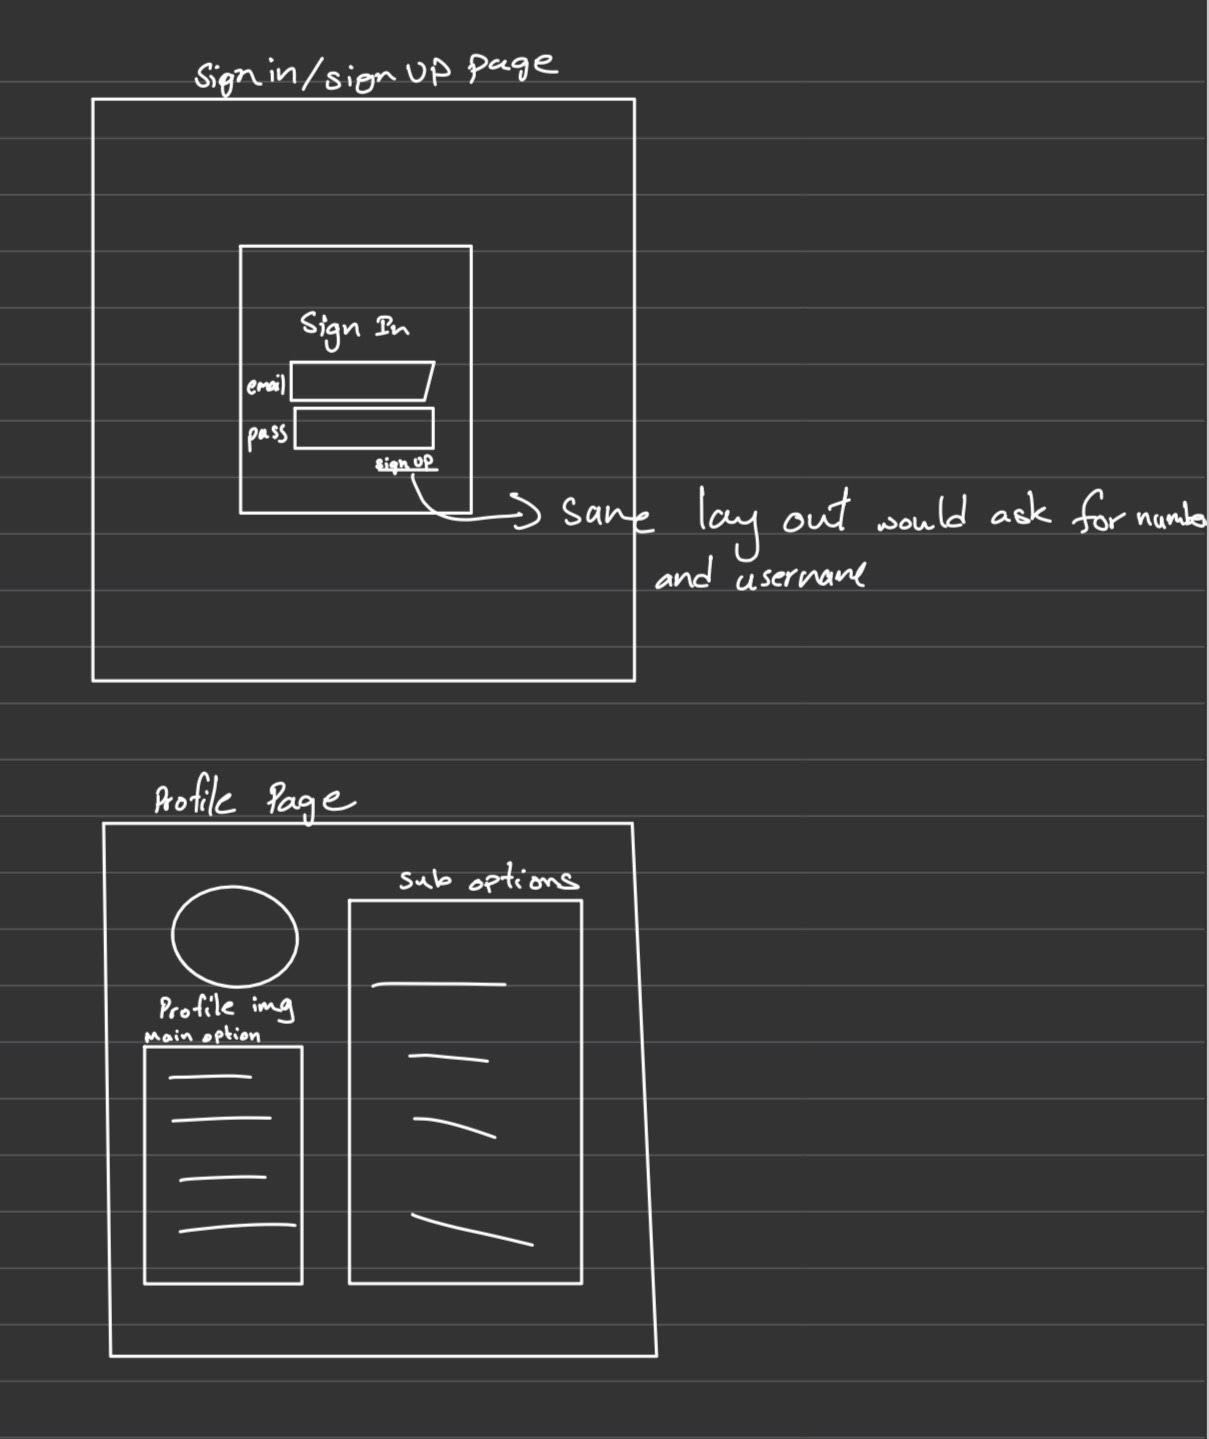 Sign in/sign up page
Sign In
email
pass
sign up
same lay out would ask for number
and username
Profile Page
Sub options
Profile img
Main option